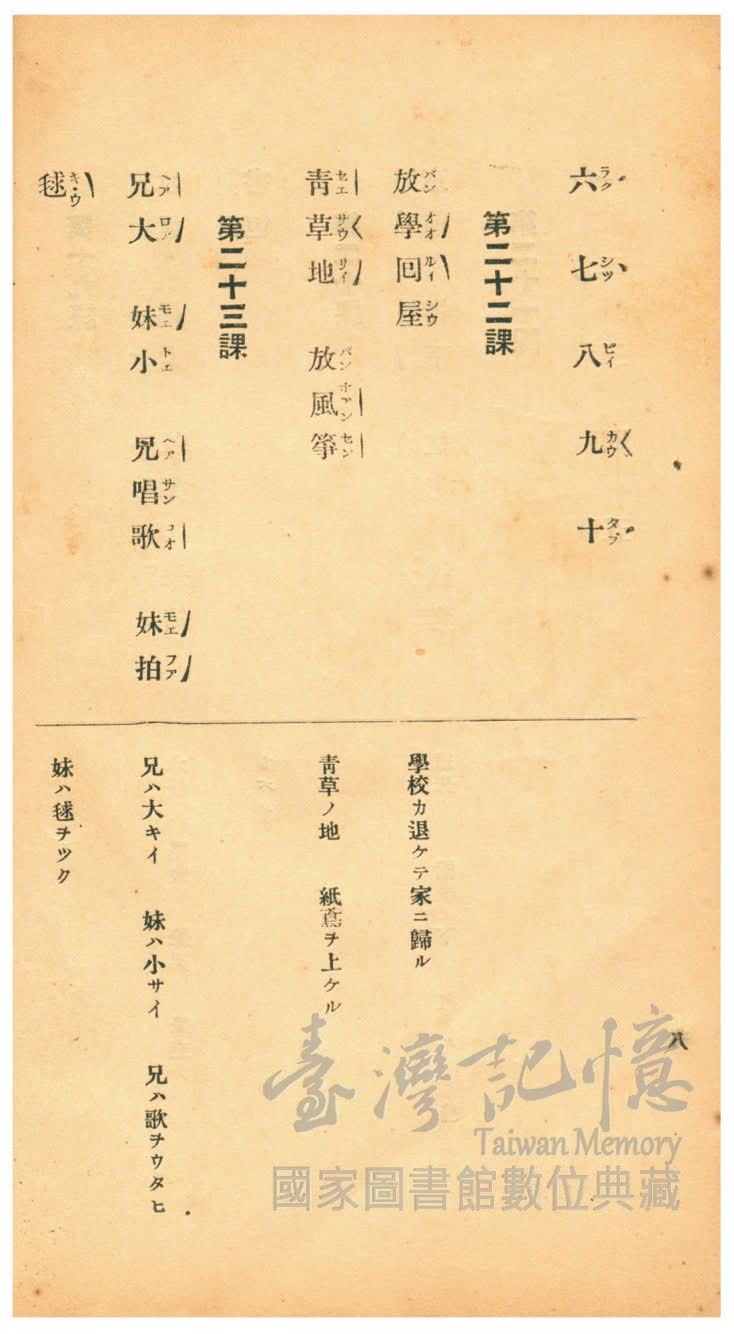 六ラク 七シッ 八ピイ 九カウ 十タプ
第二十二課
放バン學オオ回ルイ屋シウ
學校カ退ケテ家ニ歸ル
青セエ草サウ地リイ 放バン風ホアン箏セン
青草ノ地 紙鳶ヲ上ケル
第二十三課
兄ヘア大ロア 妹モエ小トエ 兄ヘア唱サン歌コオ 妹モエ拍フア
兄ハ大キイ 妹ハ小サイ 兄ハ歌ヲウタヒ
毬キウ
妹ハ毬ヲツク
八
臺灣記憶
Taiwan Memory
國家圖書館數位典藏